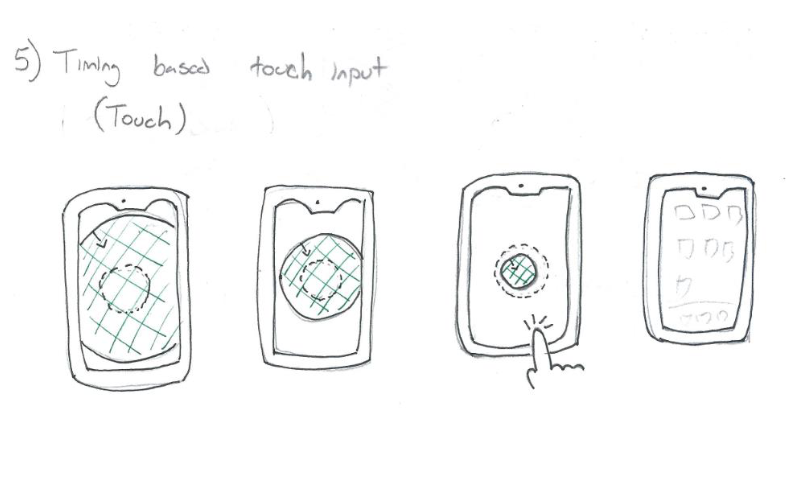 5) Timing based touch input
(Touch)